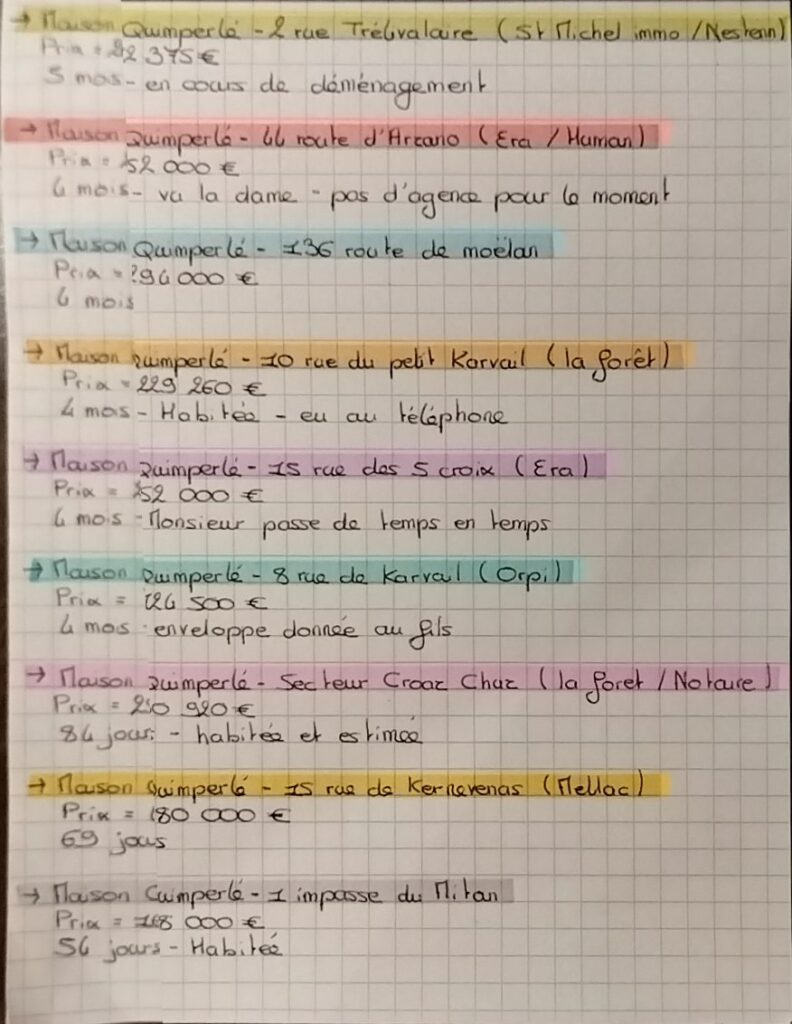 → Maison Quimperlé - 2 rue Trélivalaire (St Michel immo / Nestenn)
Prix = 92 375 €
5 mois - en cours de déménagement
→ Maison Quimperlé - 44 route d'Arzano (Era / Human)
Prix = 152 000 €
4 mois - vu la dame - pas d'agence pour le moment
→ Maison Quimperlé - 136 route de moëlan
Prix = 294 000 €
4 mois
→ Maison Quimperlé - 10 rue du petit Kervail (la forêt)
Prix = 229 260 €
4 mois - Habitée - eu au téléphone
→ Maison Quimperlé - 15 rue des 5 croix (Era)
Prix = 152 000 €
4 mois - Monsieur passe de temps en temps
→ Maison Quimperlé - 8 rue de Kervail (Orpi)
Prix = 124 500 €
4 mois - enveloppe donnée au fils
→ Maison Quimperlé - Secteur Croaz Chuz (la foret / Notaire)
Prix = 210 920 €
84 jours - habitée et estimée
→ Maison Quimperlé - 15 rue de Kernevenas (Mellac)
Prix = 180 000 €
69 jours
→ Maison Quimperlé - 1 impasse du Mitan
Prix = 168 000 €
54 jours - Habitée